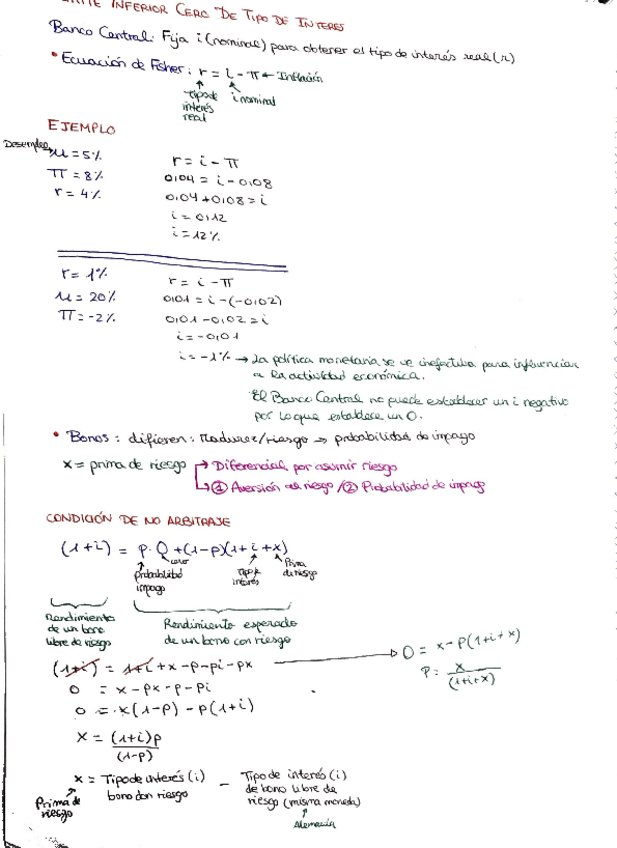 INFERIOR CERO DE TIPO DE INTERÉS
Banco Central: Fija i (nominal) para obtener el tipo de interés real (r)
• Ecuación de Fisher: r = i - π ← Inflación
Tipo de interés real
i nominal
EJEMPLO
Desempleo → u = 5%
π = 8%
r = 4%
r = i - π
0'04 = i - 0'08
0'04 + 0'08 = i
i = 0'12
i = 12%
r = 1%
u = 20%
π = -2%
r = i - π
0'01 = i - (-0'02)
0'01 - 0'02 = i
i = -0'01
i = -1% → La política monetaria se ve inefectiva para influenciar
a la actividad económica.
El Banco Central no puede establecer un i negativo
por lo que establece un 0.
• Bonos: difieren: Madurez/riesgo → probabilidad de impago
x = prima de riesgo → Diferencial por asumir riesgo
→ ① Aversión al riesgo / ② Probabilidad de impago
CONDICIÓN DE NO ARBITRAJE
(1+i) = p · 0 + (1-p)(1+i+x)
probabilidad impago
cero
Tipo de interés
Prima de riesgo
Rendimiento
de un bono
libre de riesgo
Rendimiento esperado
de un bono con riesgo
(1+i) = 1+i + x - p - pi - px
0 = x - p(1+i+x)
p = x / (1+i+x)
0 = x - px - p - pi
0 = x(1-p) - p(1+i)
x = (1+i)p / (1-p)
x = Tipo de interés (i) bono con riesgo - Tipo de interés (i) de bono libre de riesgo (misma moneda)
Prima de riesgo
Alemania